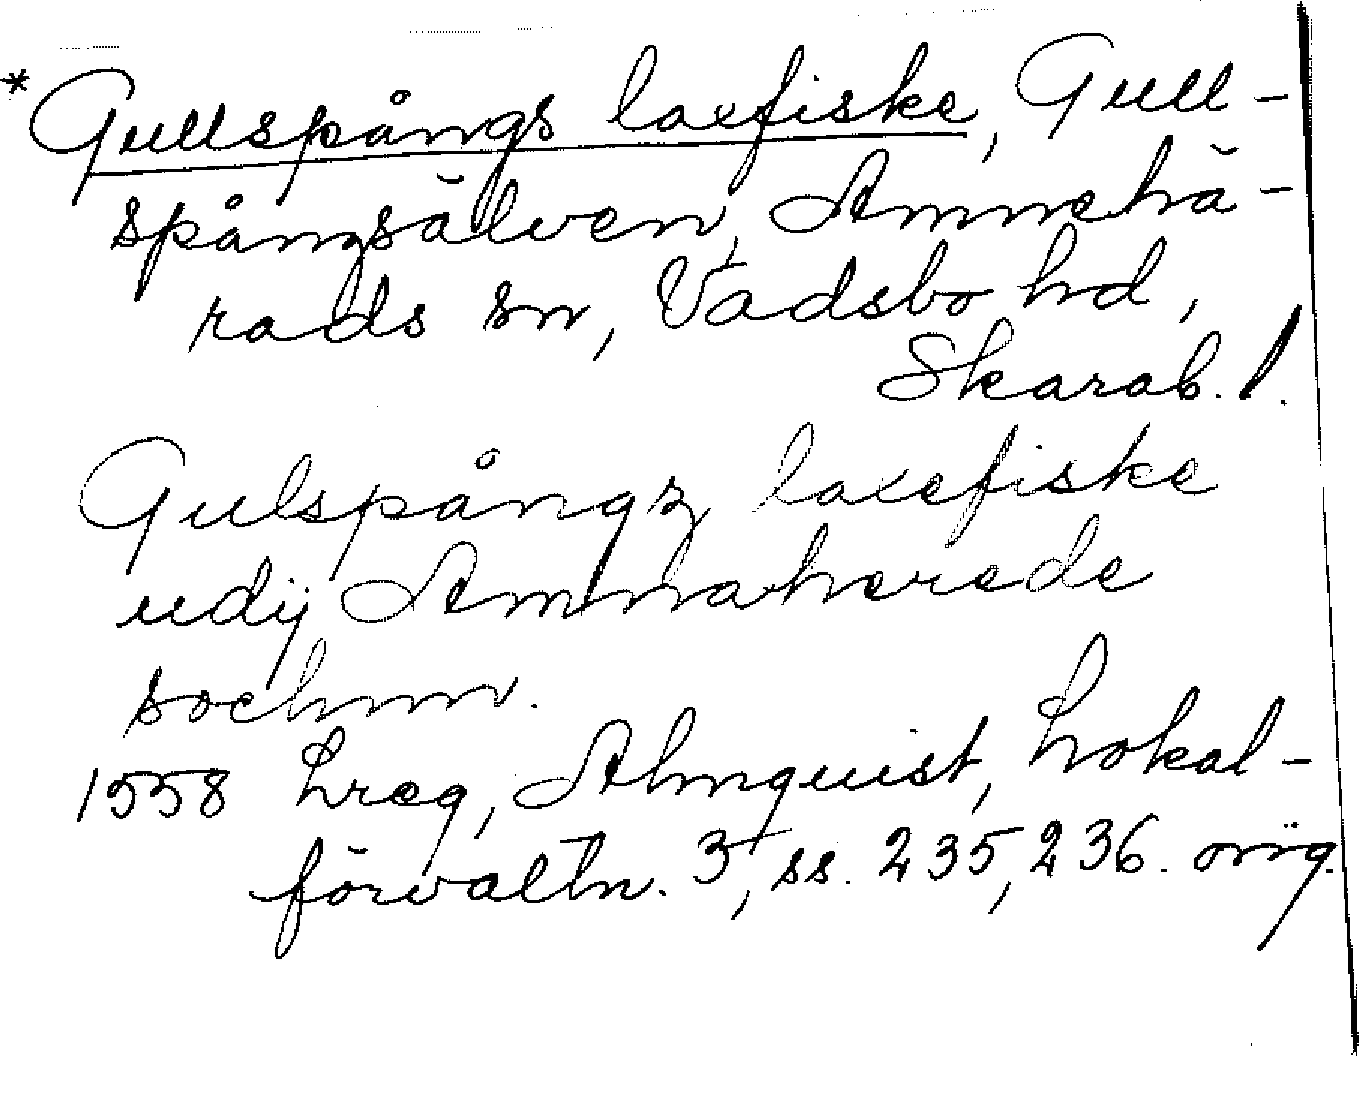 * Gullspångs laxfiske, Gull-
spångsälven, Amnehä-
rads sn, Vadsbo hd,
Skarab. l.
Gulspångz laxefiske
udij Amnaherede
sochnn.
1558 Lreg, Almquist, Lokal-
förvaltn. 3, ss. 235, 236. orig.